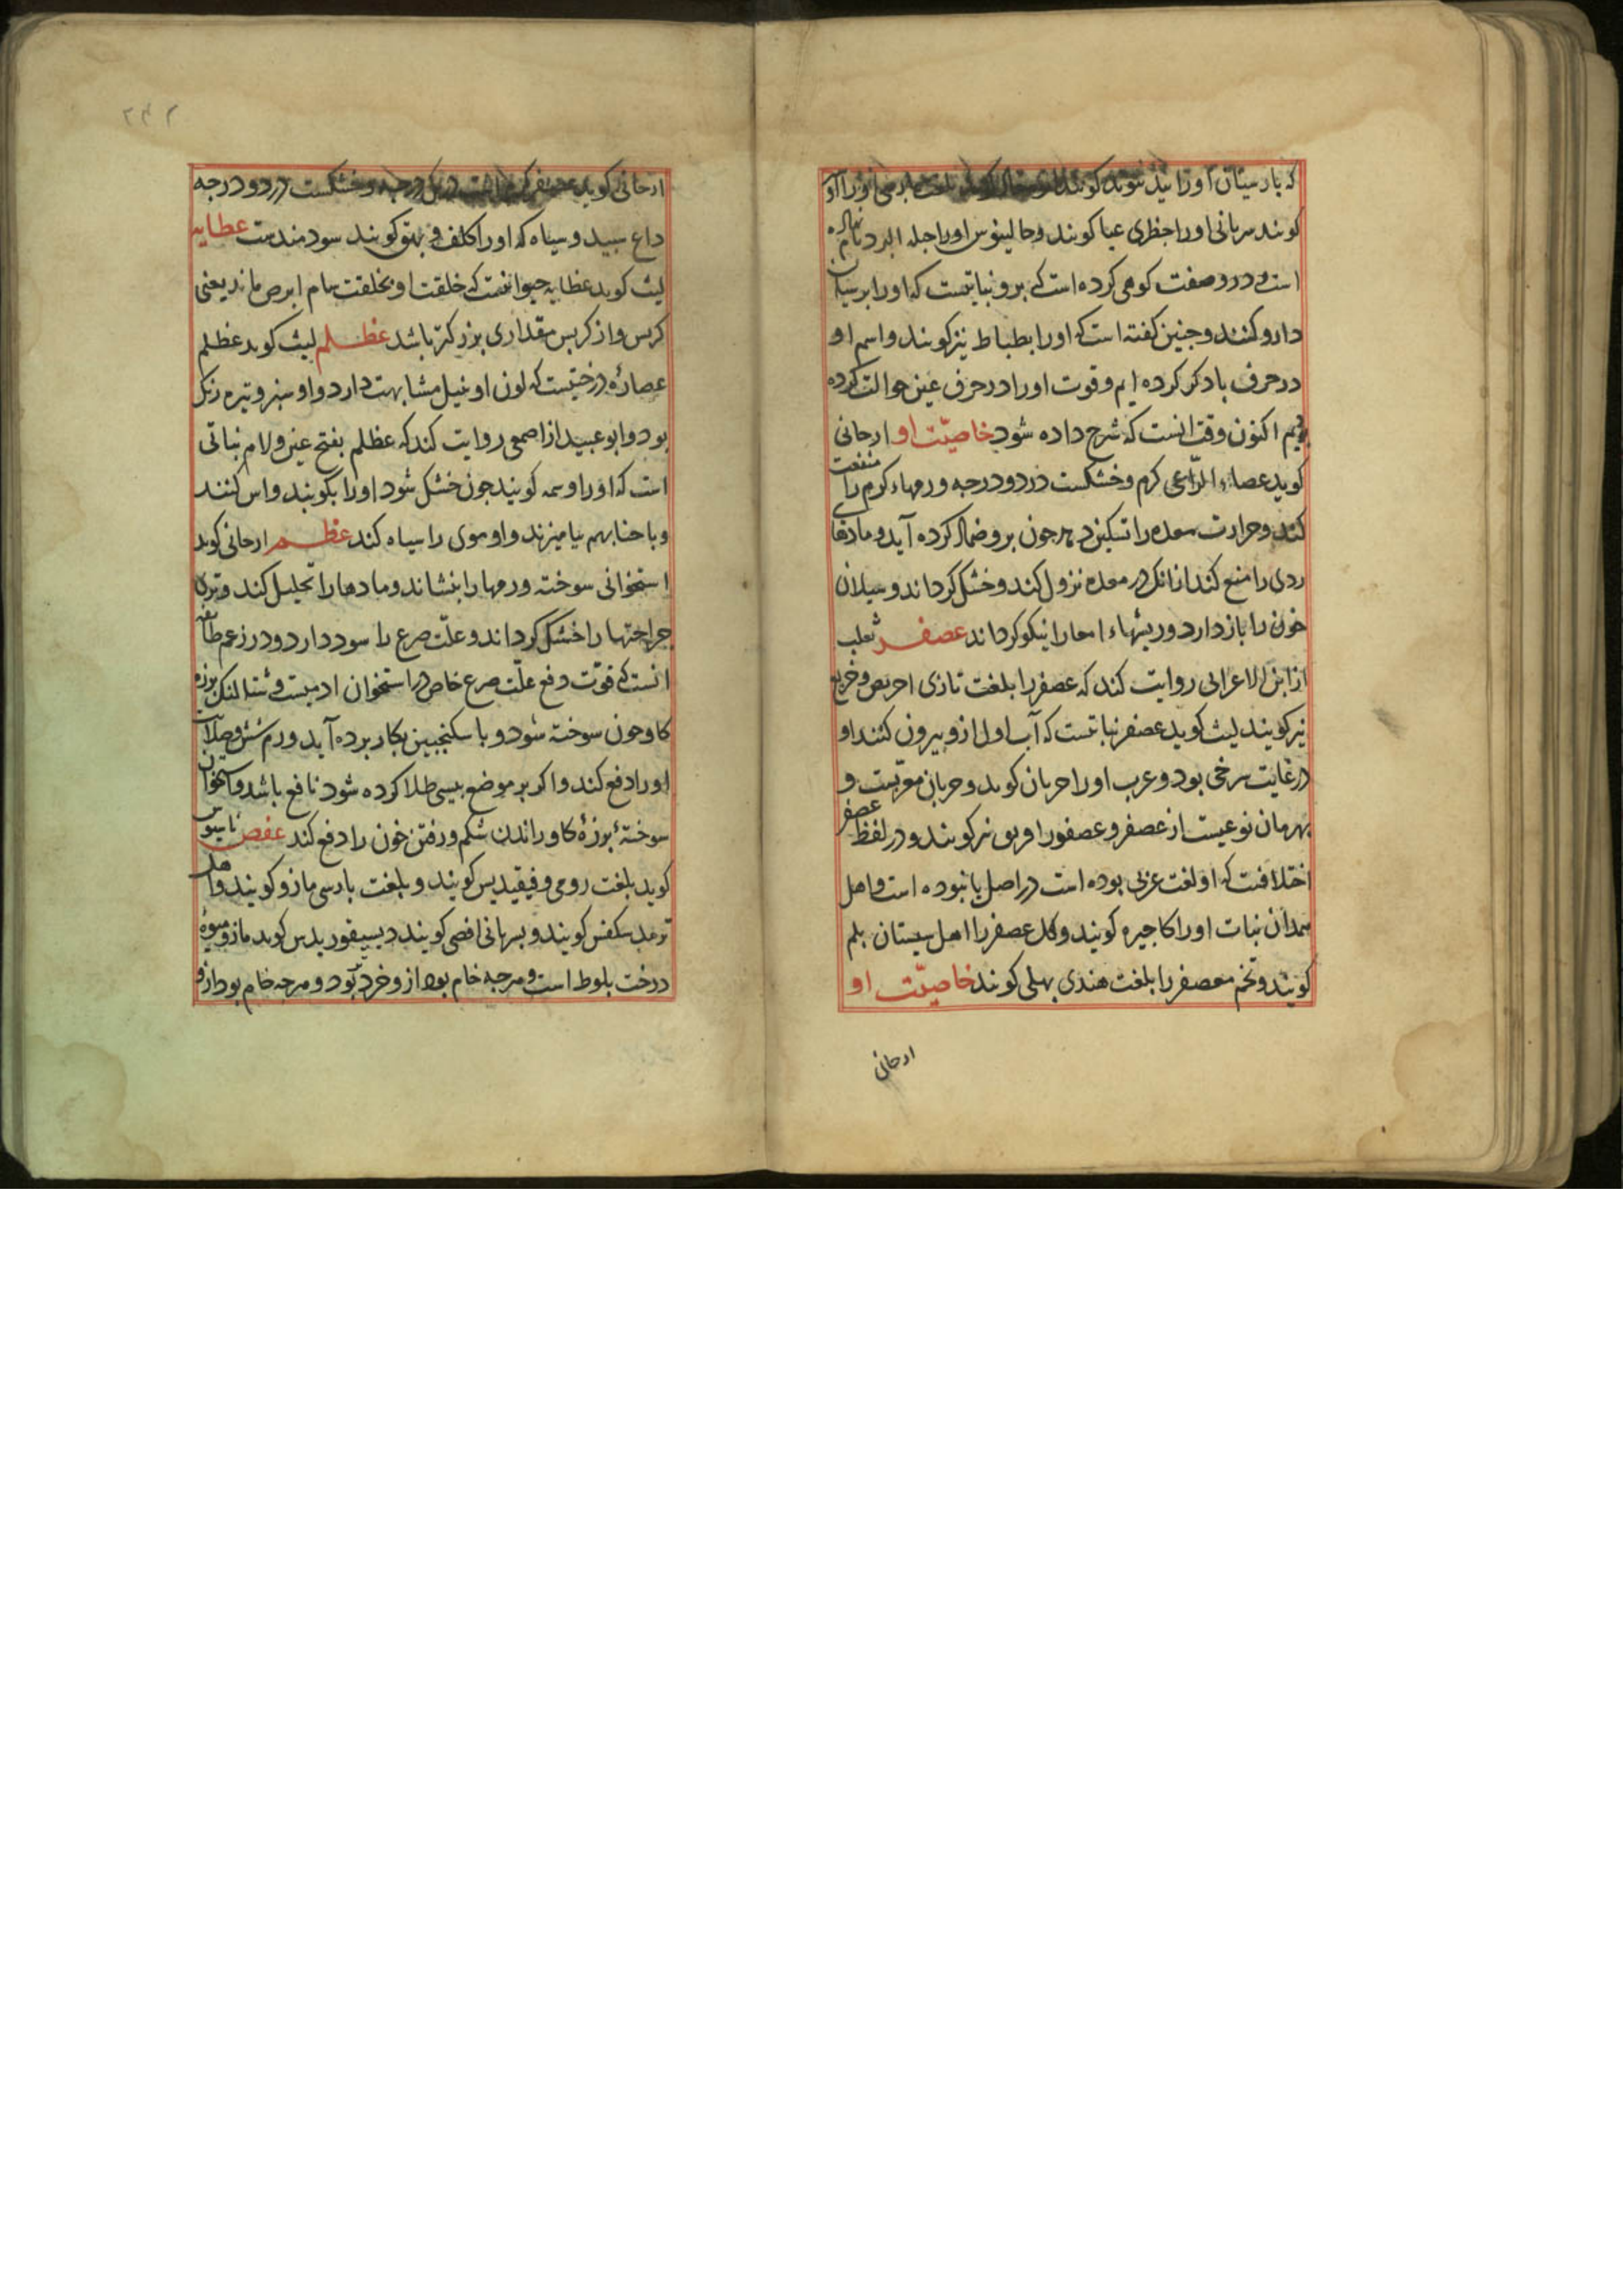 که بارسیتان اورا بید کویند بلغت بارسی اورا
کویند سریانی اورا حظری عیا کویند وجالینوس اورا جله البرد نام
است در وصفت کوهی کرده است که برو نباتیست که اورا برسیان
دارو کنند وجنین کفته است که اورا بطباط نیز کویند واسم او
در حرف با ذکر کرده ایم وقوت اورا در حرف عین حوالت کرده
اکنون وقت انست که شرح داده شود خاصیّت او ارجانی
کوید عصاء الرّاعی کرم وخشکست در دو درجه ورمهاء کرم را منفعت
کند وحرارت معده را تسکین دهد جون برو ضماد کرده آید ومادها
ردی را منع کند از انک در معده نزول کند وخشک کرداند وسیلان
خون را باز دارد وریشهاء امعا را نیکو کرداند عصفر ثعلب
از ابن الاعرابی روایت کند که عصفر را بلغت تازی احریض وخریع
نیز کویند لیث کوید عصفر نباتیست که آب اول ازو بیرون کنند او
در غایت سرخی بود وعرب اورا جریان کوید وجریان معربست و
بهرمان نوعیست از عصفر وعصفور نیز کویند ودر لفظ عصفر
اختلافست که او لغت عربی بوده است در اصل یا نبوده است واهل
همدان نبات اورا کاجیره کویند وکل عصفر را اهل سیستان بلم
کویند وتخم معصفر را بلغت هندی بهلی کویند خاصیّت او
ارجانی
۲۴۲
ارجانی کوید عصفر کرم است در یک درجه وخشکست در دو درجه
داغ سبید وسیاه که اورا کلف وبهق کویند سودمندست عظایه
لیث کوید عظایه حیوانیست که خلقت او بخلقت سام ابرص ماند یعنی
کربس واز کربس مقداری بزرکتر باشد عظلم لیث کوید عظلم
عصارهٔ درختیست که لون او بنیل مشابهت دارد واو سبز وتیره رنک
بود وابو عبید از اصمعی روایت کند که عظلم بفتح عین ولام نباتی
است که اورا وسمه کویند جون خشک شود اورا بکوبند واس کنند
وبا حنا بهم بیامیزند واو موی را سیاه کند عظم ارجانی کوید
استخوانی سوخته ورمها را بنشاند ومادها را تحلیل کند وترئ
جراحتها را خشک کرداند وعلّت صرع را سود دارد ودر زعم طایفه
انست که قوّت دفع علّت صرع خاص در استخوان ادمیست وشتالنک بوزه
کاو جون سوخته شود وبا سکنجبین بکار برده آید ورم شش وصلابت
اورا دفع کند واکر بر موضع بیسی طلا کرده شود نافع باشد واستخوان
سوختهٔ بوزهٔ کاو راندن شکم ورفتن خون را دفع کند عفص
کوید بلغت رومی وفیقیدیس کویند وبلغت بارسی مازو کویند واهل
ترمد سکفس کویند وبسریانی افصی کویند دیسیقوریدس کوید مازو میوهٔ
درخت بلوط است وهرجه خام بود ازو خرد بود وهرجه خام بود ازو